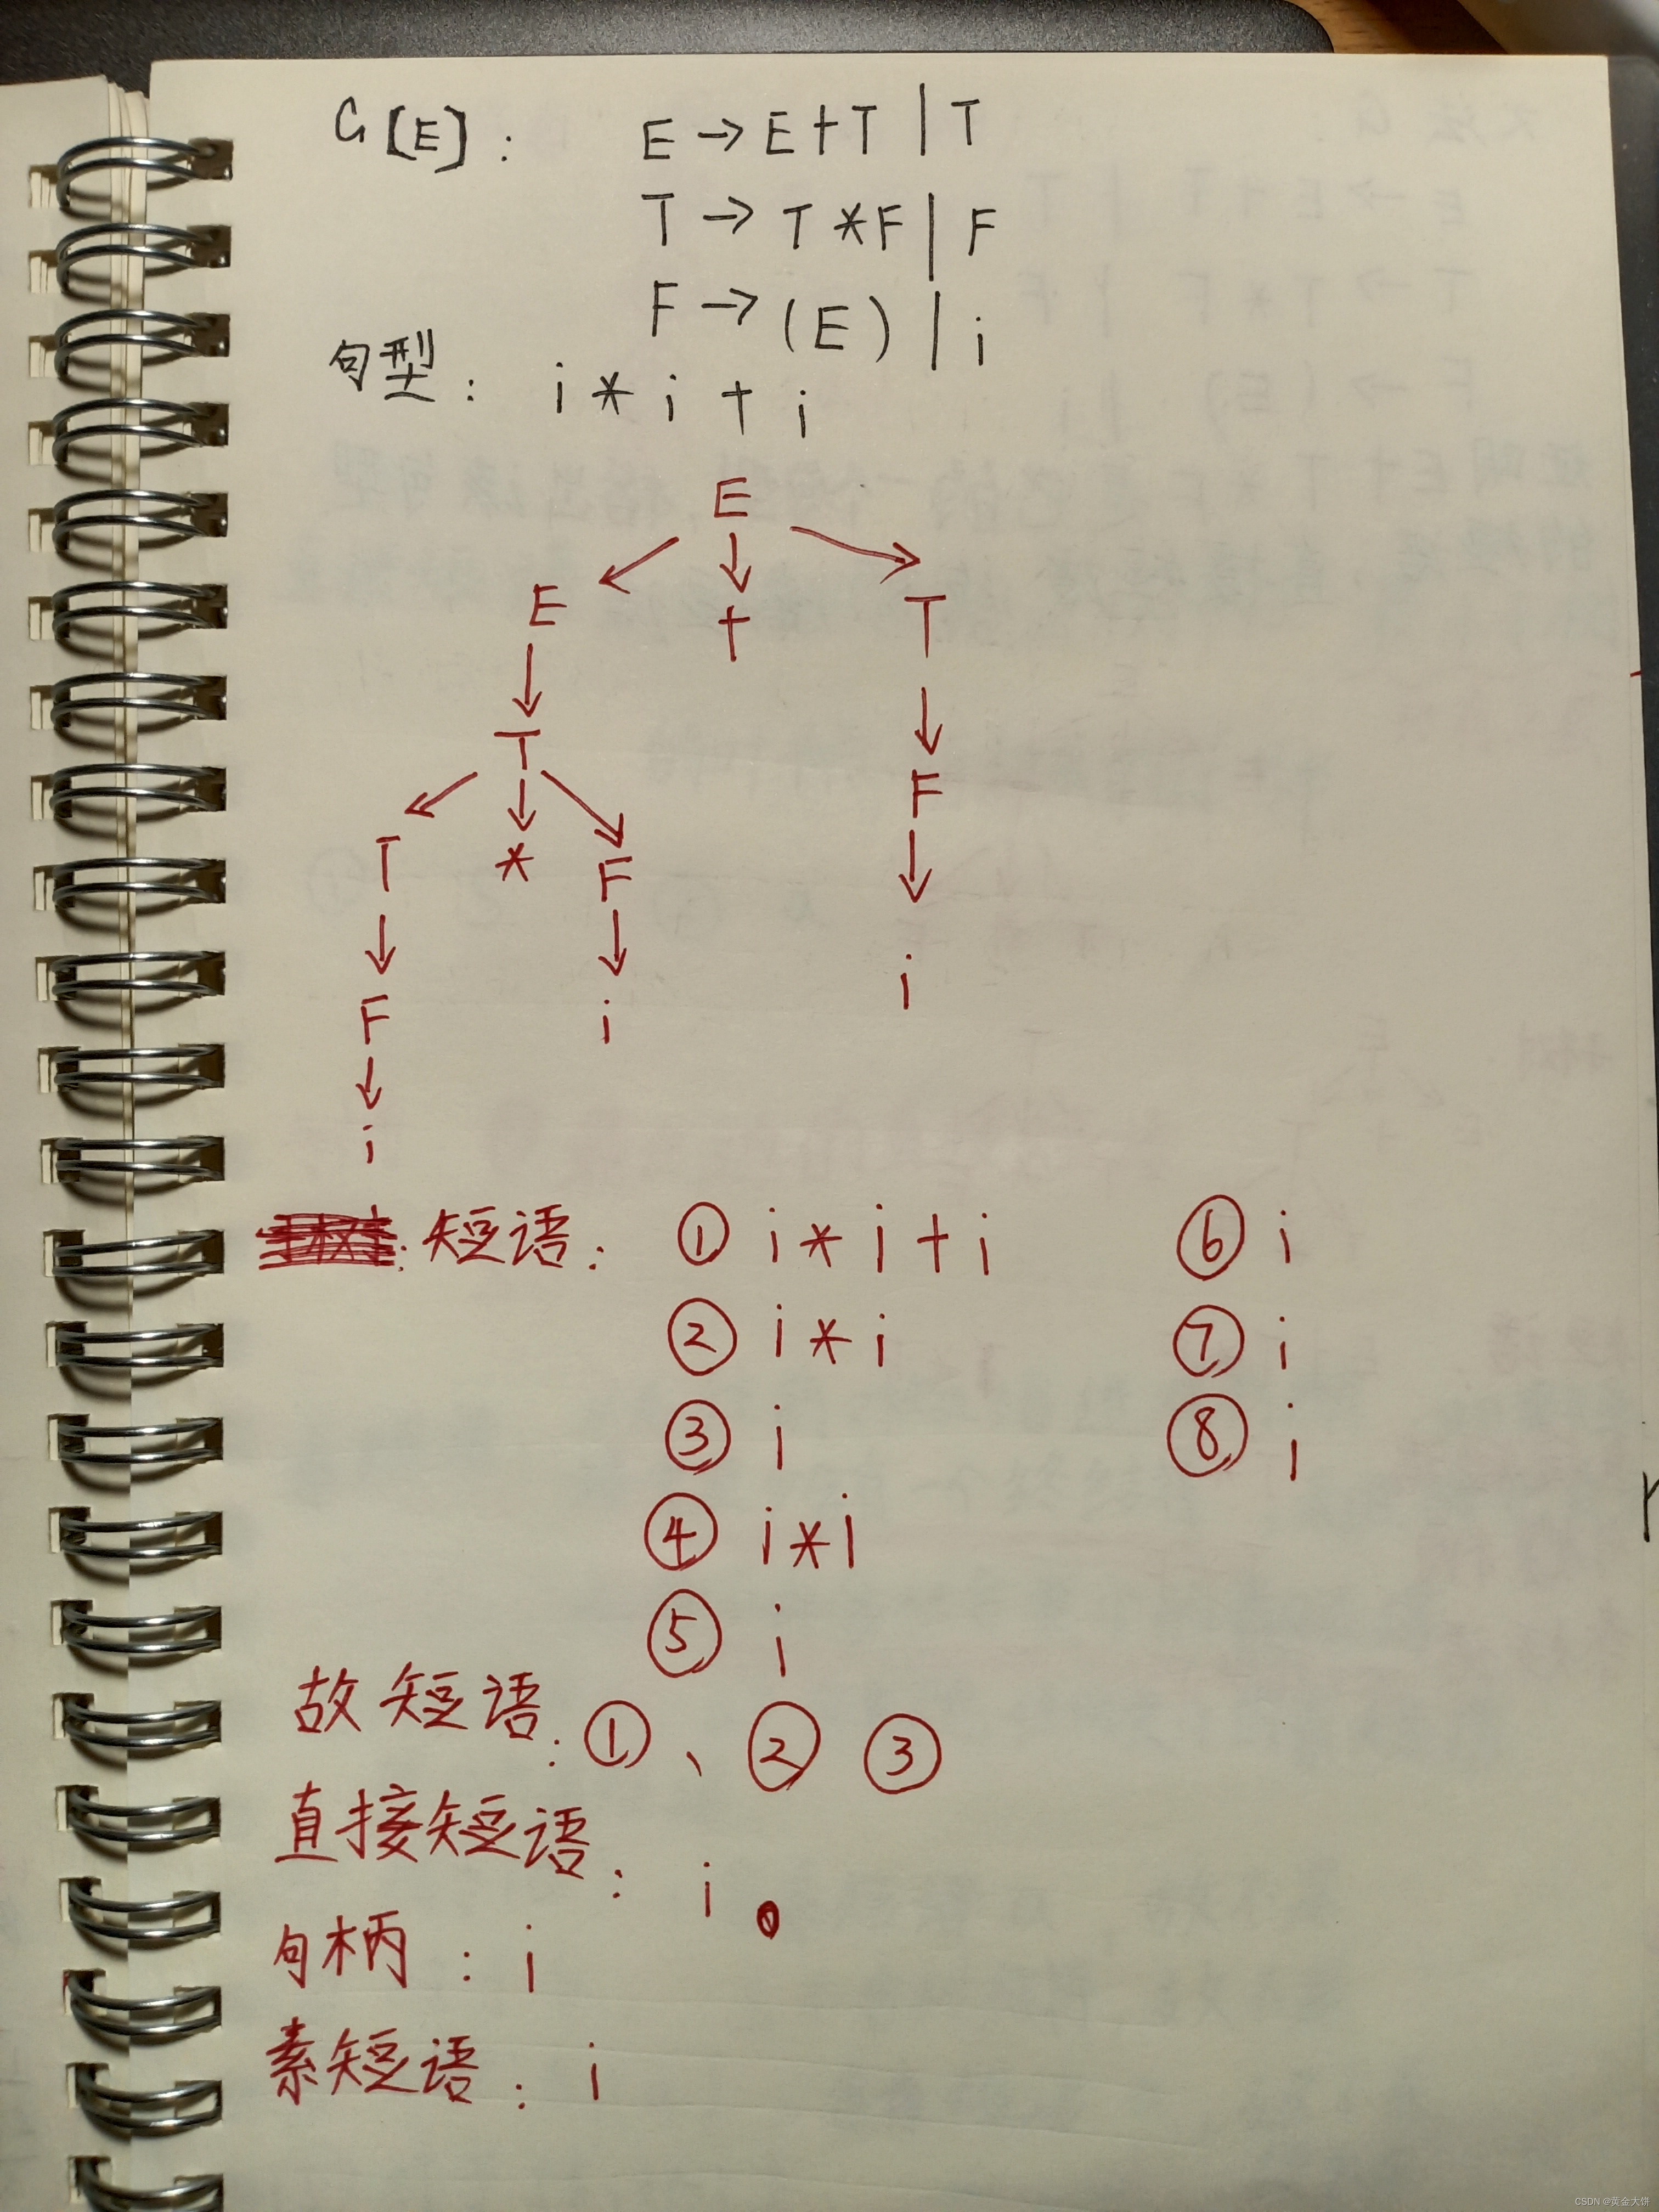 G[E]: E→E+T|T
T→T*F|F
F→(E)|i
句型: i*i+i
E
E + T
T F
T * F i
F i
i
短语: ① i*i+i ⑥ i
② i*i ⑦ i
③ i ⑧ i
④ i*i
⑤ i
故短语:①、② ③
直接短语: i。
句柄: i
素短语: i
CSDN @黄金大饼